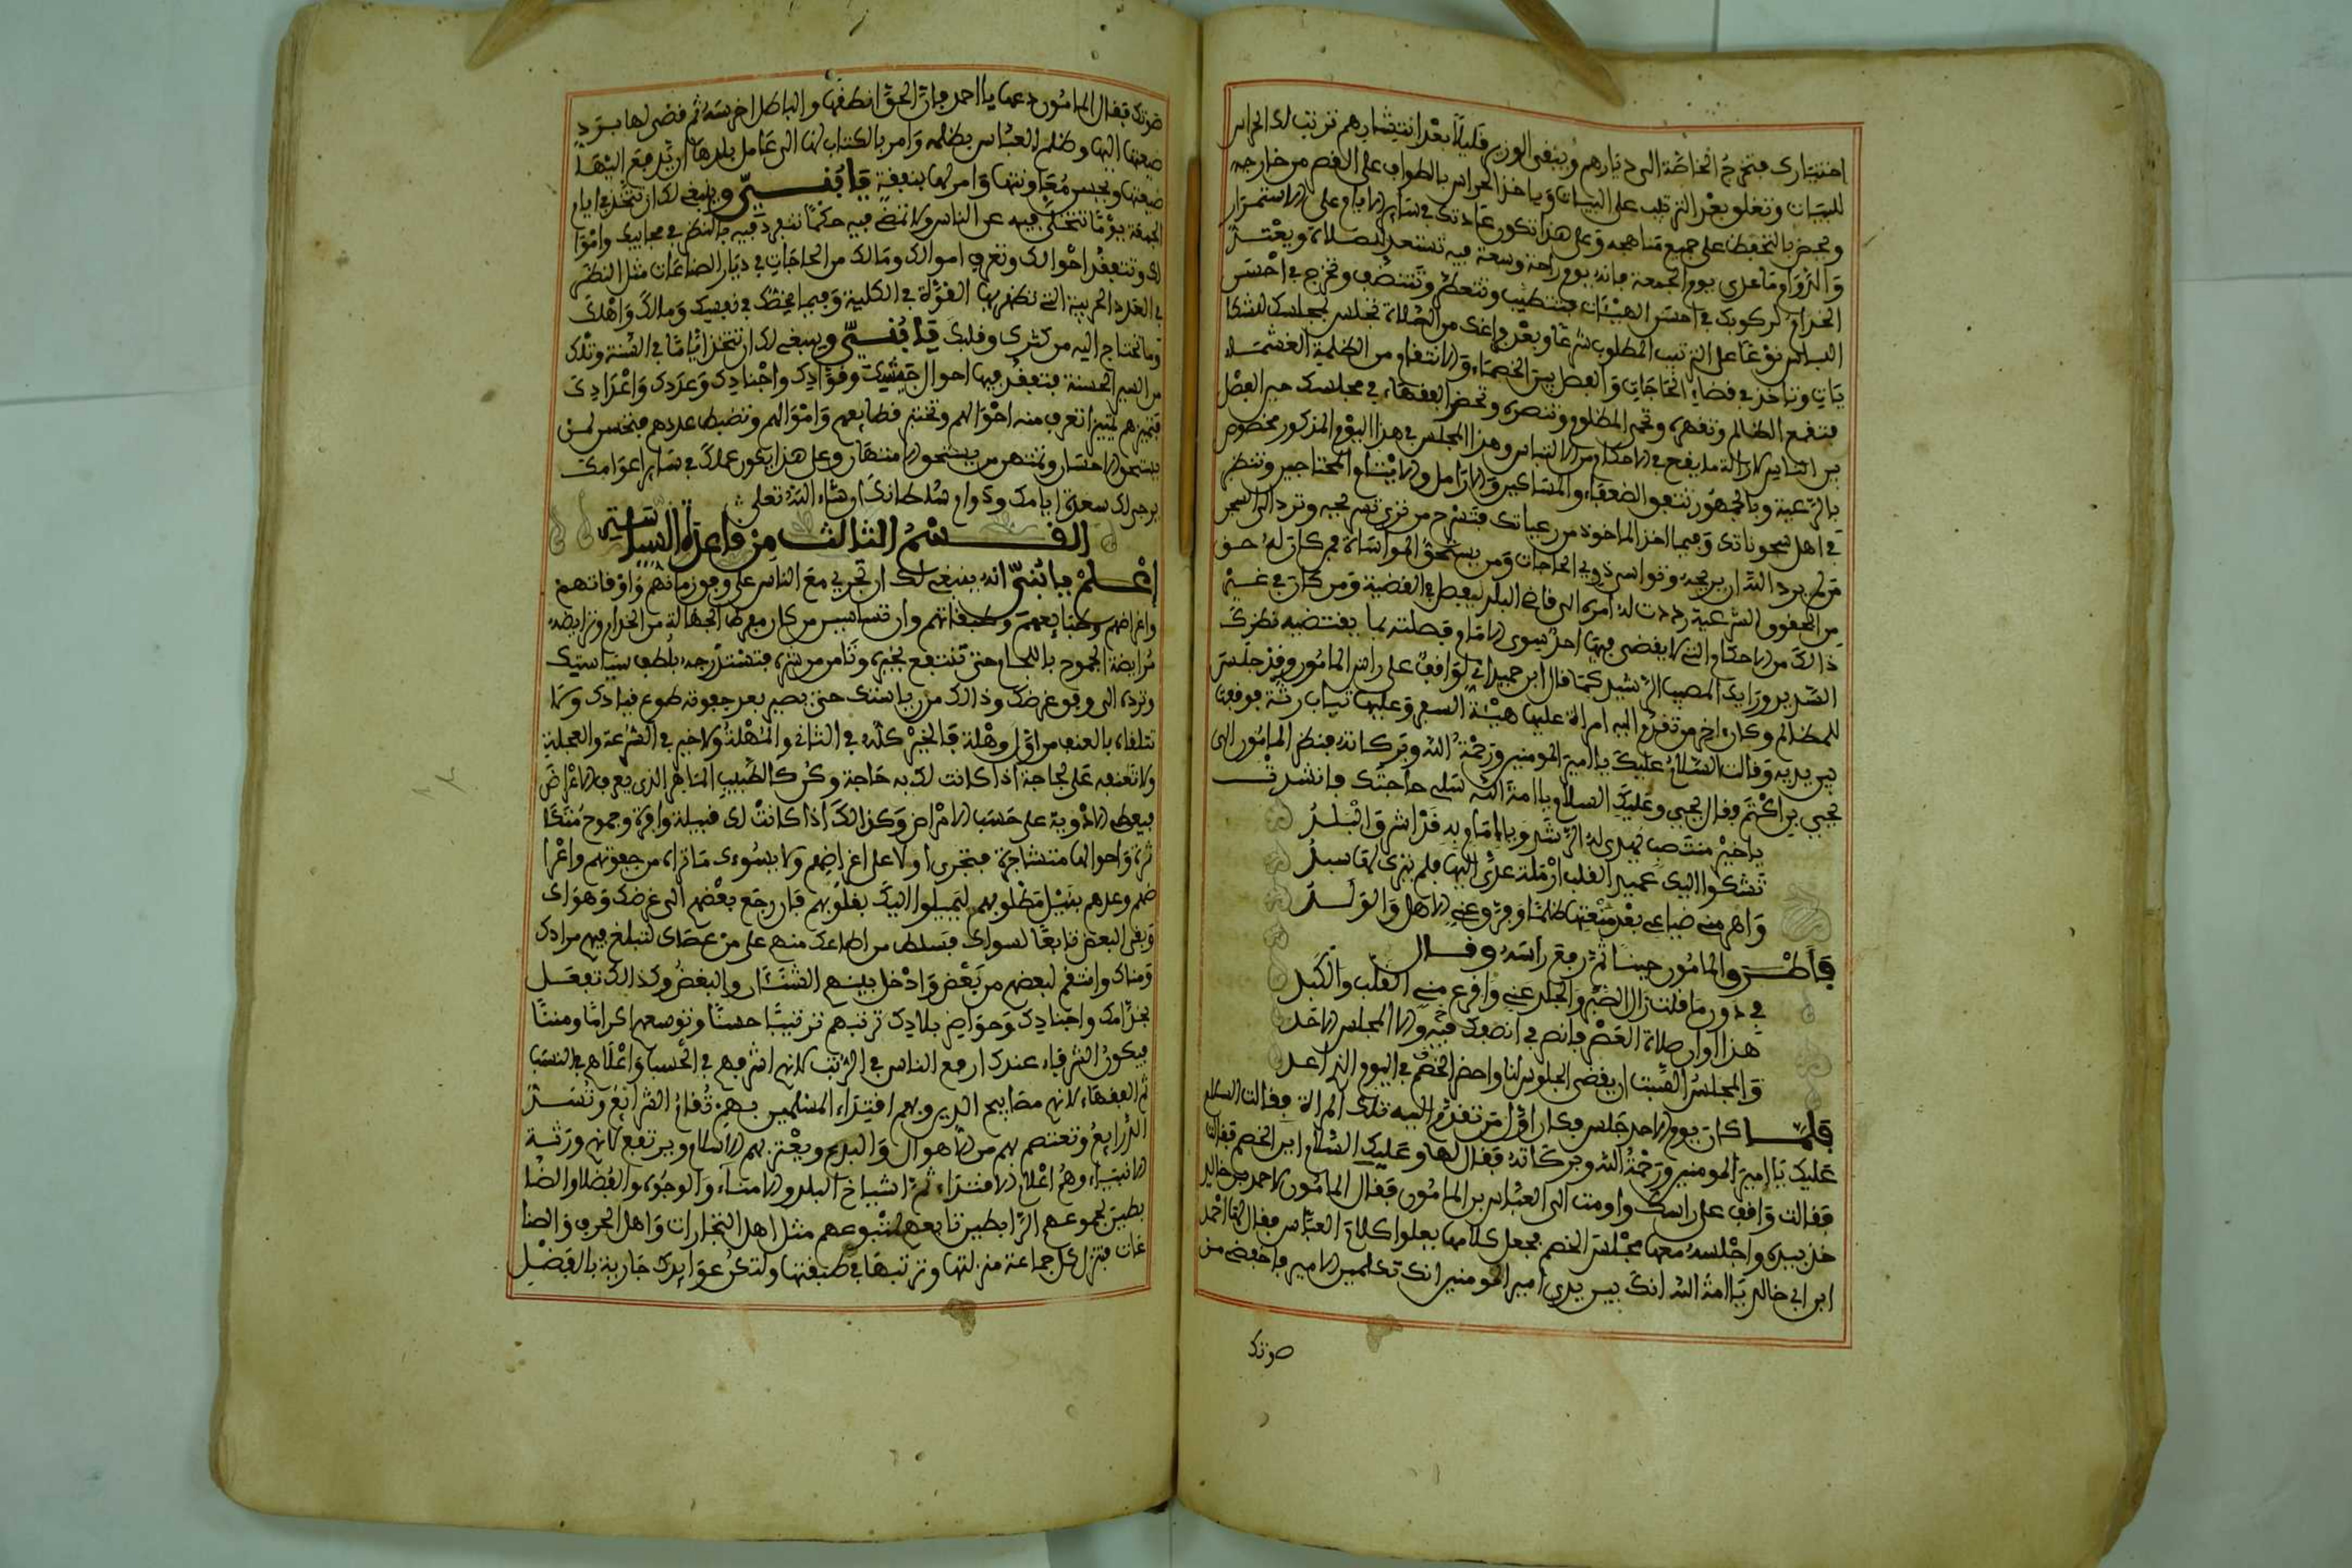 اختيارك فتخرج الخاصة الى ديارهم ويبقى الوزير قليلا بعد انتشارهم ترتب لك الحراس
للبيات وتغلو بعد الترتيب على البيبان وياخذ الحراس بالطواف على القصر من خارجه
ويحض بالتحفظ على جميع مناهجه وعلى هذا تكون عادتك في ساير الايام وعلى الاستمرار
والدوام ما عدى يوم الجمعة فانه يوم راحة وسعة فيه تستعد للصلاة ويعتد
الخدام لركوبك في احسن الهيئات فتتطيب وتتعطر وتتنظف وتخرج في احسن
اللباس نوعا على الترتيب المطلوب شرعا وبعد فراغك من الصلاة تجلس بمجلسك للشكا
يات وتاخذ في قضاء الحاجات والفصل بين الخصماء والانتقام من الظلمة الغشمة
فتقمع الظالم وتقهره وتحمي المظلوم وتنصره وتحضر الفقهاء في مجلسك حين الفصل
بين الناس لازالة ما يقع في الاحكام من الالتباس وهذا المجلس في هذا اليوم المذكور مخصوص
بالرعية وبالجمهور تتفق الضعفاء والمساكين والارامل والايتام والمحتاجين وتنظر
في اهل سجوناتك وفيما اخذ الماخوذ من رعياتك فتسرح من ترى تسريحه وترد الى السجن
من لم يرد الله ان يريحه وتواسي ذوي الحاجات ومن يستحق المواساة فمن كان له حق
من الحقوق الشرعية رددت له امره الى قاضي البلد ليفصل في القضية ومن كان في غير
ذالك من الاحكام التي لا يقضي فيها احد سوى الامام فصلته بما يقتضيه نظرك
السديد ورايك المصيب الرشيد كما قال ابن حميد اني لواقف على راس المامون وقد جلس
للمظالم وكان اخر من تقدم اليه امراة عليها هيئة السفر وعليها ثياب رثة فوقفت
بين يديه وقالت السلام عليك يا امير المومنين ورحمة الله وبركاته فنظر المامون الى
يحيى بن اكثم فقال يحيى وعليك السلام يا امة الله سلي حاجتك فانشدت
يا خير منتصب يهدى له الرشد ويا اماما به قد اشرق البلد
تشكوا اليك عميد القلب ارملة عدى اليها فلم يترك لها سبد
واهرمني ضياعي بعد منعتها ظلما وفرق عني الاهل والولد
فاطرق المامون حينا ثم رفع راسه وقال
في دون ما قلت زال الصبر والجلد عني واقرح مني القلب والكبد
هذا اوان صلاة العصر فانصرفي انصفك فيه والا المجلس الاحد
والمجلس السبت ان يقضى الجلوس لنا واحضري الخصم في اليوم الذي اعد
فلما كان يوم الاحد جلس فكان اول من تقدم اليه تلك المراة فقالت السلام
عليك يا امير المومنين ورحمة الله وبركاته فقال لها وعليك السلام اين الخصم فقالت
فقالت واقف على راسك واومت الى العباس بن المامون فقال المامون لاحمد بن خالد
خذ بيده واجلسه معها مجلس الخصم فجعل كلامها يعلوا كلام العباس فقال لها احمد
ابن ابي خالد يا امة الله انك بين يدي امير المومنين انك تكلمين الامير فاخفضي من
صوتك
صوتك فقال المامون دعها يا احمد فان الحق انطقها والباطل اخرسه ثم قضى لها برد
ضيعتها اليها وظلم العباس بظلمه وامر بالكتاب لها الى عامل بلدها ان يرد معز اليها
ضيعتها ويحسن معاونتها وامر لها بنفقة فابنـي وينبغي لك ان تتخذ في ايام
الجمعة يوما تتخلى فيه عن الناس ولا تقضي فيه حكما تتفرد فيه بالنظر في محابيك وامو
لك وتتفقد احوالك وتعرف اموالك ومالك من الحاجات في ديار الصناعات مثل النظر
في العدد الحربية التي تظهر بها القوة في الكلية وفيما يخصك في نفسك ومالك واهلك
وما تحتاج اليه من كثرك وقلك فابني وينبغي لك ان تتخذ اياما في السنة وتلك
من السير الحسنة فتتفقد فيها احوال جيشك وقوادك واجنادك وعددك واعدادك
فتميزهم تمييزا تعرف منه احوالهم وتختبر قطايعهم واموالهم وتضبط عددهم فتحسن لمن
يستحق الاحسان وتنتهر من يستحق الانتهار وعلى هذا يكون عملك في ساير اعوامك
يرجى لك سعدة ايامك ودوام سلطانك ان شاء الله تعلى
القسم الثالث من قاعدة السياسة
اعلم يا بني انه ينبغي لك ان تجري مع الناس على وفق زمانهم واوقاتهم
واغراضهم وطباعهم وطبقاتهم وان تسايس من كان مفرط الجهالة من الخدام وتراوضه
مراوضة الجموح باللجام حتى تنتفع بخيره وتامن من شره فتستدرجه بلطف سياستك
وترده الى وفق غرضك وذالك من رياستك حتى يصير بعد جفوته طوع قيادك ولا
تتلقاه بالعنف من اول وهلة فالخير كله في التاني والمهلة ولا خير في السرعة والعجلة
ولا تعنفه على لجاجة اذا كانت لك به حاجة وكن كالطبيب الماهر الذي يعرف الاعراض
فيعطي الادوية على حسب الامراض وكذالك اذا كانت لك قبيلة وافرة وجموح متكا
ثرة واحوالها متشاجرة فتجري اولا على اغراضهم ولا يسوءك ما تراه من جفوتهم واغرا
ضهم وعدهم بنيل مطلوبهم ليميلوا اليك بقلوبهم فان رجع بعضهم الى غرضك وهواك
وبقي البعض تابعا لسواك فسلط من اطاعك منهم على من عصاك لتبلغ فيهم مرادك
ومناك وانتقم لبعضهم من بعض وادخل بينهم الشنئان والبغض وكذالك تفعل
بخدامك واجنادك وحواضر بلادك ترتبهم ترتيبا حسنا وتوسعهم اكراما ومننا
فيكون الشرفاء عندك ارفع الناس في الرتب لانهم اشرفهم في الحسب واعلاهم في النسب
ثم الفقهاء لانهم مصابيح الدين وبهم اقتداء المسلمين بهم تقام الشرائع وتسد
الذرايع وتعتصم بهم من الاهوال والبدع ويعتز بهم الاسلام ويرتفع لانهم ورثة
الانبياء وهم اعلام الاقتداء ثم اشياخ البلد والامناء والوجوه والفضلا والضا
بطين لجموعهم الرابطين تابعهم لمتبوعهم مثل اهل التجارات واهل الحرف والصنا
عات فتنزل كل جماعة منزلتها وترتبها في طبقتها ولتكن عوايدك جارية بالفضل